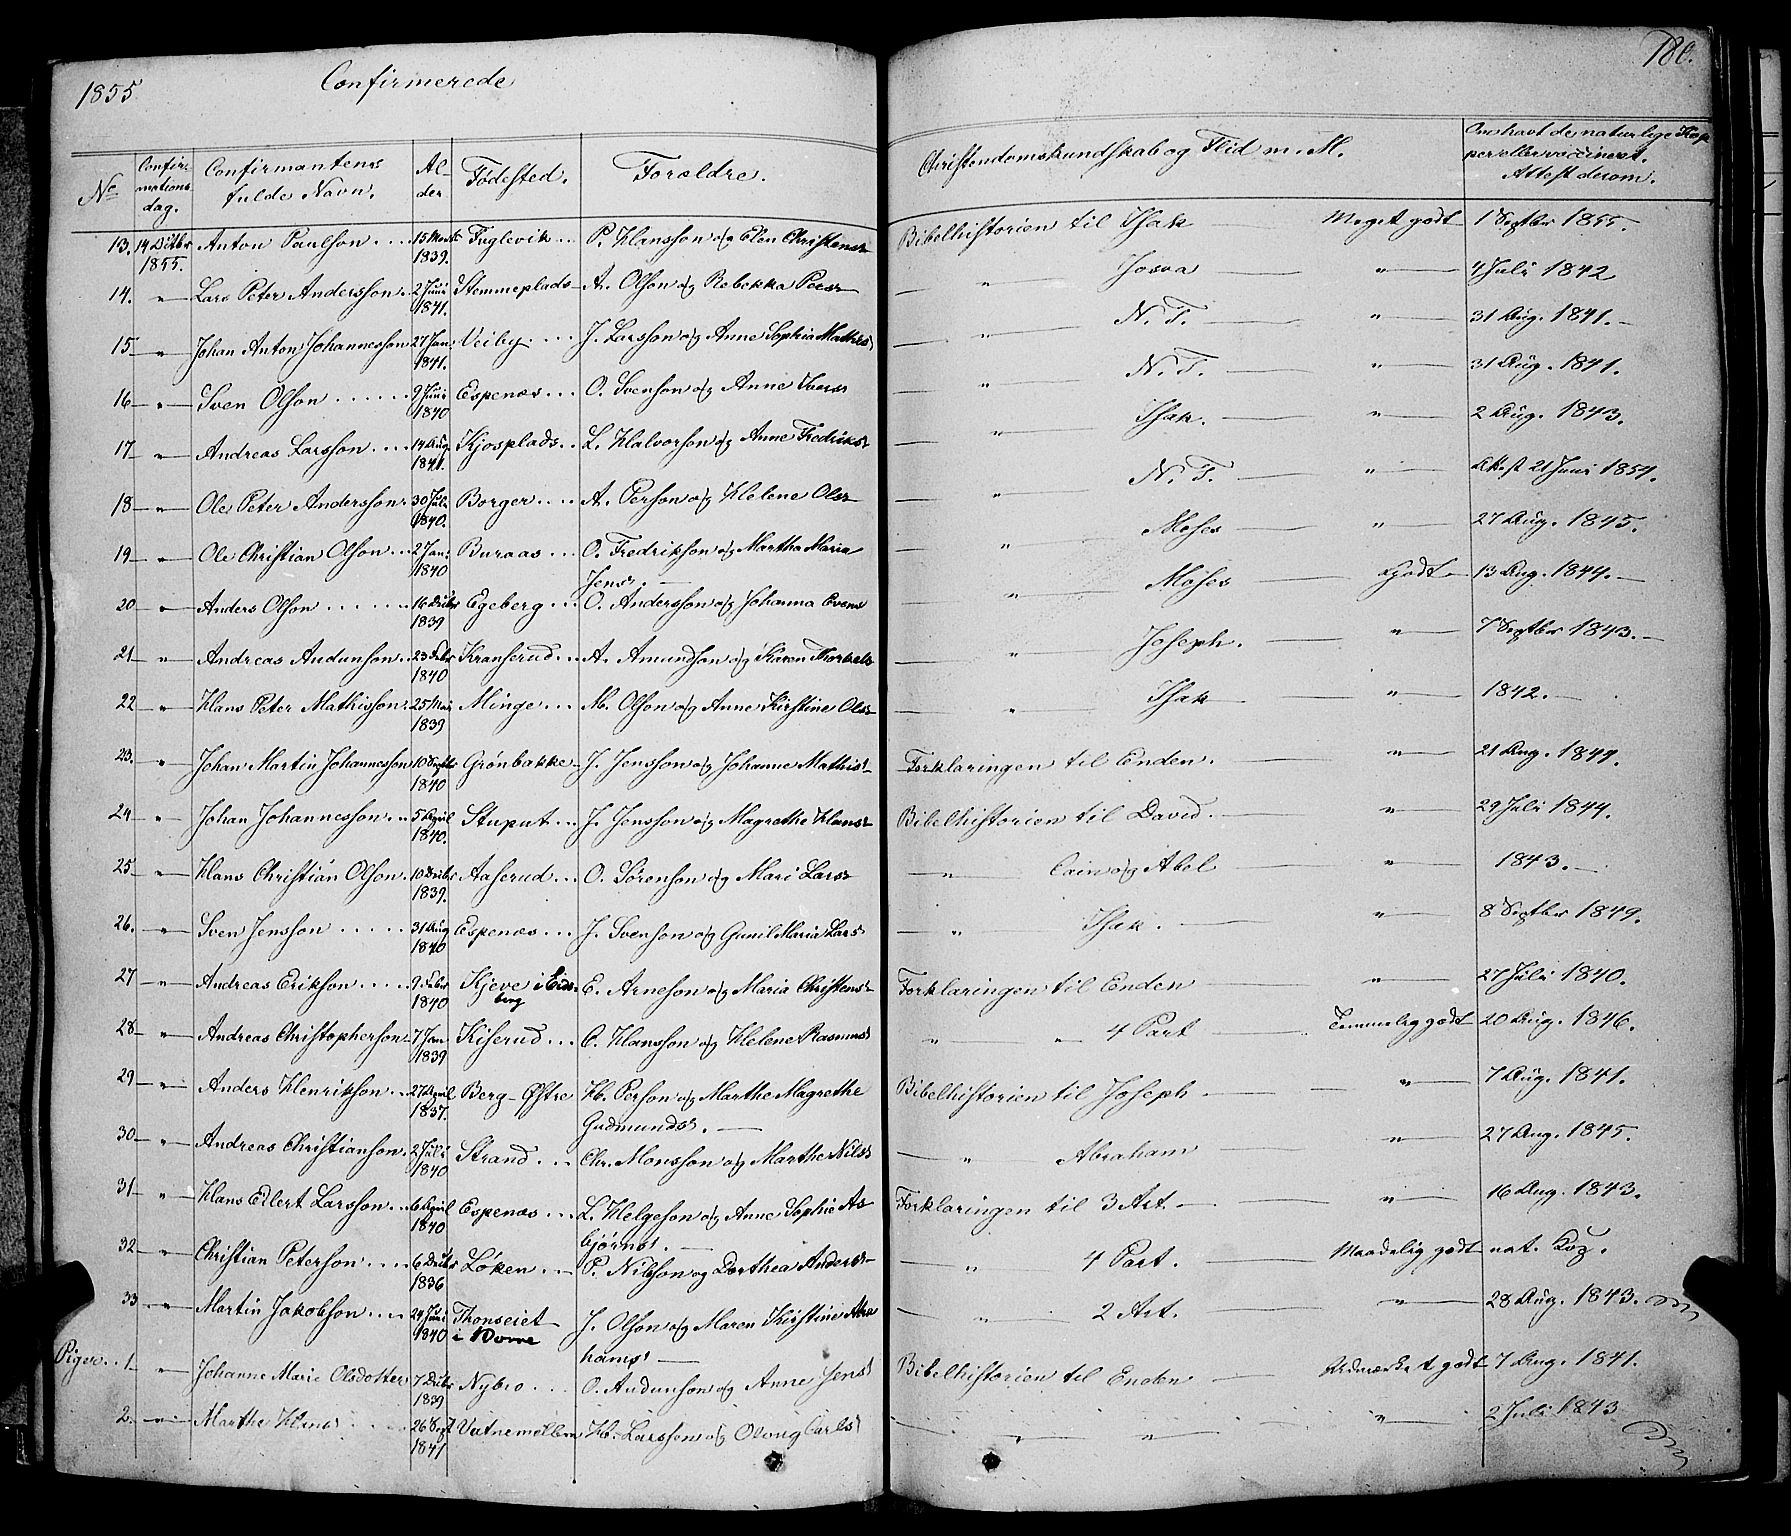 1855
Confirmerede
180.
No
Confir-
mations
dag.
Confirmantens
fulde Navn.
Al-
der
Fødested.
Forældre.
Christendomskundskab og Flid m. M.
Om havt de naturlige Kop
per eller vaccineret.
Attest derom.
13. 14 Octbr 1855. Anton Paulson 15 Marts 1839. Fuglevik P. Hansson og Elen Christens Bibelhistorien til Isak Meget godt 1 Septbr 1855.
14. " Lars Peter Andersson 2 Juni 1841. Stemmeplads A. Olson og Rebekka Peers " Josva " 4 Juli 1842
15 " Johan Anton Johannesson 27 Jan. 1841. Veiby J. Larsson og Anne Sophia Mathis " N. T. " 31 Aug. 1841.
16 " Sven Olson 9 Juni 1840 Espenæs O. Svenson og Anne Ivers " N. T. " 31 Aug. 1841.
17 " Andreas Larsson 14 Aug. 1841. Kjosplads L. Halvorson og Anne Fredriks " Isak. " 2 Aug. 1843.
18 " Ole Peter Andersson 30 Juli 1840. Borger A. Person og Helene Ols " N. T. " Attest 21 Juni 1854.
19 " Ole Christian Olson 2 Jan. 1840 Buraas O. Fredrikson og Martha Maria
Jens. " Moses " 27 Aug. 1845.
20 " Anders Olson 16 Decbr 1839 Egeberg O. Andersson og Johanna Evens " Moses Godt 13 Aug. 1844.
21 " Andreas Audunson 23 Febr 1840 Kranserud A. Amundson og Karen Thorkels " Joseph. " 7 Septbr 1843.
22 " Hans Peter Mathisson 25 Mai 1839 Minge M. Olson og Anne Kirstine Ols " Isak " 1842.
23. " Johan Martin Johannesson 10 Septbr 1840 Grønbakke J. Jensson og Johanne Mathis Forklaringen til Enden. " 21 Aug. 1844.
24 " Johan Johannesson 5 April 1840. Stuput J. Jensson og Magrethe Hans Bibelhistorien til David. " 29 Juli 1844.
25 " Hans Christian Olson 10 Decbr 1839. Aaserud O. Sørenson og Mari Lars " Cain og Abel " 1843.
26. " Sven Jensson 31 Aug 1840 Espenæs J. Svenson og Gunil Maria Lars " Isak. " 8 Septbr 1849.
27 " Andreas Erikson 9 Febr 1840 Kjeve i Eids
berg E. Arneson og Maria Christens Forklaringen til Enden " 27 Juli 1840.
28 " Andreas Christopherson 7 Jan 1839 Kiserud C. Hansson og Helene Rasmus " " 4 Part Temmelig godt 20 Aug. 1846.
29 " Anders Henrikson 27 April 1837. Berg Østre H. Person og Marthe Magrethe
Gudmunds. Bibelhistorien til Joseph " 7 Aug. 1841.
30 " Andreas Christianson 2 Juli 1840 Strand Chr. Monsson og Marthe Nils " Abraham " 27 Aug. 1845.
31 " Hans Edlert Larsson 6 April 1840 Espenæs L. Helgeson og Anne Sophie As
bjørns. Forklaringen til 3 Art. " 16 Aug. 1843.
32 " Christian Peterson 6 Decbr 1836 Løken P. Nilsson og Dorthea Anders " 4 Part. Maadelig godt nat. Kop.
33 " Martin Jakobson 24 Juni 1840 Thonseiet
i Borre J. Olson og Maren Kirstine Abra
hams " 2 Art. " 28 Aug. 1843.
Piger. 1 " Johanne Marie Olsdotter 7 Decbr 1839 Nybro O. Audunson og Anne Jens Bibelhistorien til Enden Udmærket godt 7 Aug. 1841.
2. " Marthe Hans 26 Sept 1841 Vatnemøllen H. Larsson og Oloug Carls " " " 2 Juli 1843